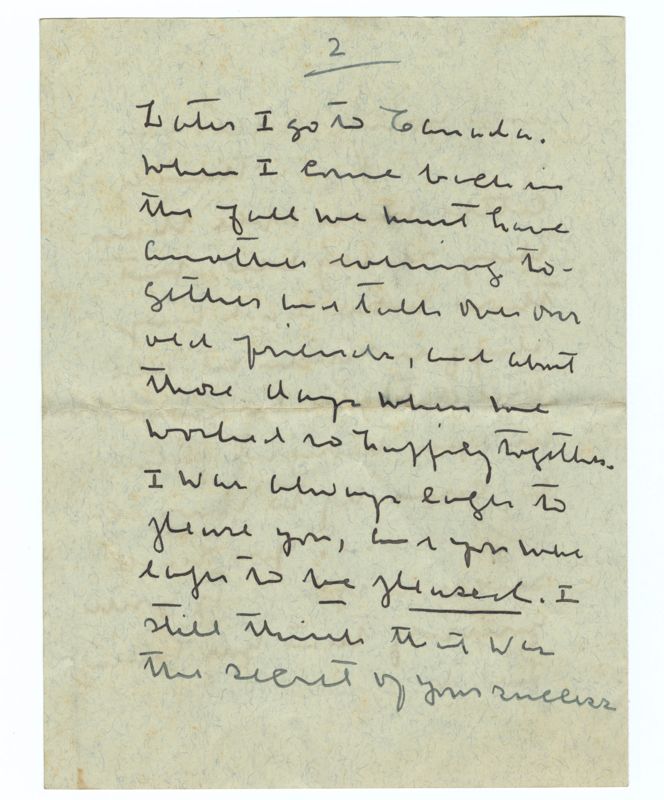 2
Later I go to Canada.
When I come back in
the fall we must have
another evening to-
gether and talk over our
old friends, and about
those days when we
worked so happily together.
I was always eager to
please you, and you were
eager to be pleased. I
still think that was
the secret of your success